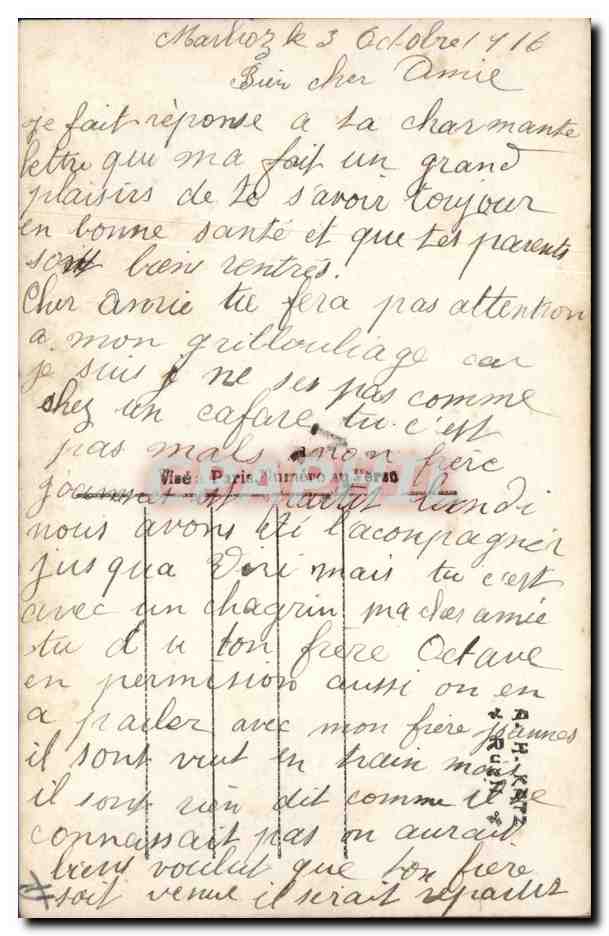 Marlioz le 3 Octobre 1916
Bien cher Amie
je fait réponse a ta charmante
lettre qui ma fait un grand
plaisirs de te s'avoir toujour
en bonne santé et que tes parents
soit biens rentrés.
Cher amie tu fera pas attention
a mon grillouliage car
je suis je ne ses pas comme
chez un cafare tu c'est
pas mals mon frère
Visé Paris. Numéro au Verso
joannes est partit lundi
nous avons été l'acompagner
jusqua Viri mais tu c'est
avec un chagrin ma cher amie
tu d u ton frère Octave
en permision aussi on en
a parler avec mon frère joannes
il sont venut en train mais
il sont rien dit comme il se
connaissait pas on aurait
biens voulut que ton frère
soit venue il serait repartit
A. H. KATZ
& Rueil